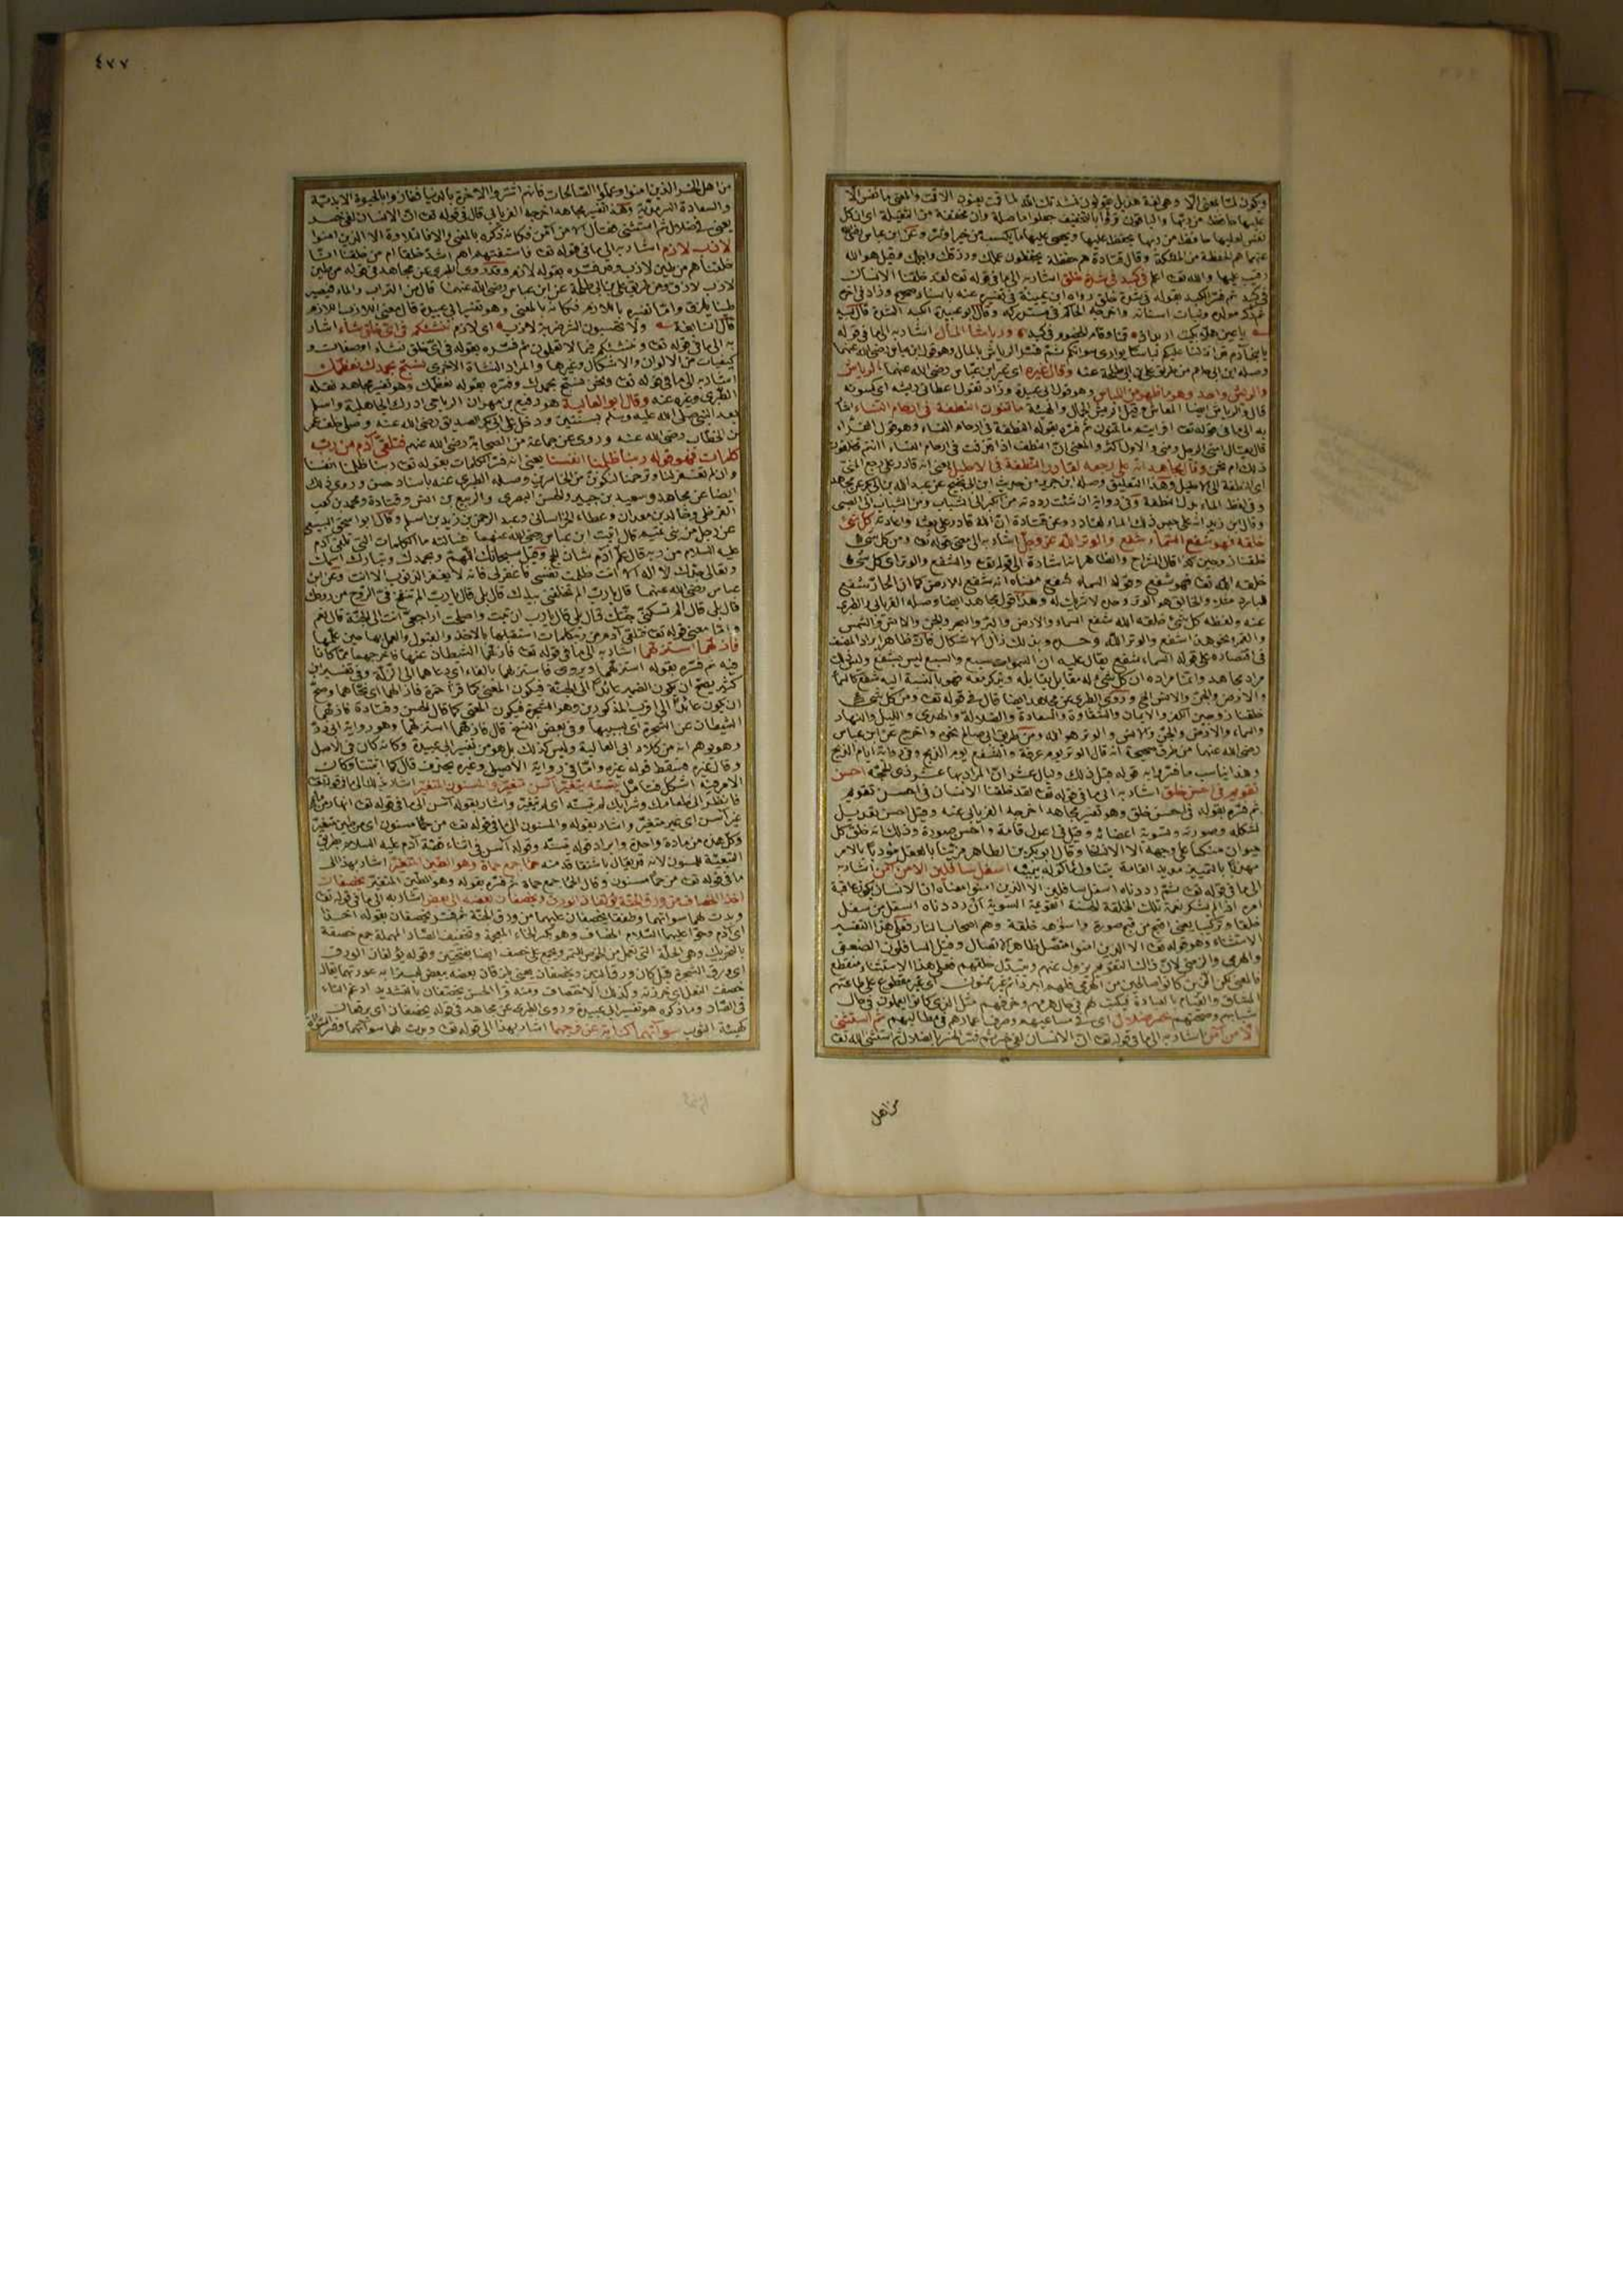 ويكون لما بمعنى الا وهو لغة هذيل يقولون نشدتك الله لما قمت يعنون الا قمت والمعنى ما نفس الا
عليها حافظ من ربها والباقون قرؤا بالتخفيف جعلوا ما صلة وان مخففة من الثقيلة اى ان كل
نفس لعليها حافظ من ربها يحفظ عليها ويحصى عليها ما يكسب من خير او شر وعن ابن عباس رضى الله
عنهما هم الحفظة من الملئكة وقال قتادة هم حفظة يحفظون عملك ورزقك واجلك وقيل هو الله
رقيب عليها والله تعـ اعلم فى كبد فى شدة خلق اشار به الى ما فى قوله تعـ لقد خلقنا الانسان
فى كبد ثم فسر الكبد بقوله فى شدة خلق رواه ابن عيينة فى تفسيره عنه باسناد صحيح وزاد فى اخره
ثم ذكر مولده ونبات اسنانه واخرجه الحاكم فى مستدركه وقال ابو عبيدة الكبد الشدة قال لبيد
يا عين هلا بكيت اربد اذ قمنا وقام الخصوم فى كبد ورياشا المال اشار به الى ما فى قوله
يا بنى آدم قد انزلنا عليكم لباسا يوارى سوآتكم ثم فسر الرياش بالمال وهو قول ابن عباس رضى الله عنهما
وصله ابن ابى حاتم من طريق على بن ابى طلحة عنه وقال غيره اى غير ابن عباس رضى الله عنهما الرياش
والريش واحد وهو ما ظهر من اللباس وهو قول ابى عبيدة وزاد تقول اعطانى ريشه اى كسوته
قال والرياش ايضا المعاش وقيل الريش الجمال والهيئة ما تمنون النطفة فى ارحام النساء اشار
به الى ما فى قوله تعـ افرايتم ما تمنون ثم فسره بقوله النطفة فى ارحام النساء وهو قول الفراء
قال يقال امنى الرجل ومنى والاول اكثر والمعنى ان النطف اذا قذفت فى ارحام النساء اانتم تخلقون
ذلك ام نحن وقال مجاهد انه على رجعه لقادر النطفة فى الاحليل يعنى انه قادر على رجع المنى
اى النطفة الى الاحليل وهذا التعليق وصله ابن جرير من حديث ابن ابى نجيح عن عبد الله بن ابى بكر عن مجاهد
وفى لفظ الماء بدل النطفة وفى رواية ان شئت رددته من الكبر الى الشباب ومن الشباب الى الصبى
وقال ابن زيد انه على حبس ذلك الماء لقادر وعن قتادة ان الله قادر على بعثه واعادته كل شئ
خلقه فهو شفع السماء شفع والوتر الله عز وجل اشار به الى معنى قوله تعـ ومن كل شئ
خلقنا زوجين كذا قال الشراح والظاهر انه اشارة الى قوله تعـ والشفع والوتر اى كل شئ
خلقه الله تعـ فهو شفع وقوله السماء شفع معناه انه شفع للارض كما ان الحار شفع
للبارد مثلا والخالق هو الوتر وحده لا شريك له وهذا قول مجاهد ايضا وصله الفريابى والطبرى
عنه ولفظه كل شئ خلقه الله شفع السماء والارض والبر والبحر والجن والانس والشمس
والقمر ونحو هذا شفع والوتر الله وحده وبذلك زال الاشكال فان ظاهر ايراد المصنف
فى اقتصاره على قوله السماء شفع يقال عليه ان السموات سبع والسبع ليس بشفع وليس ذلك
مراد مجاهد وانما مراده ان كل شئ له مقابل يقابله ويذكر معه فهو بالنسبة اليه شفع كالسماء
والارض والجن والانس الخ وروى الطبرى عن مجاهد ايضا قال فى قوله تعـ ومن كل شئ
خلقنا زوجين الكفر والايمان والشقاوة والسعادة والضلالة والهدى والليل والنهار
والسماء والارض والجن والانس والوتر هو الله ومن طريق ابى صالح نحوه واخرج عن ابن عباس
رضى الله عنهما من طرق صحيحة انه قال الوتر يوم عرفة والشفع يوم الذبح وفى رواية ايام الذبح
وهذا يناسب ما فسروا به قوله قبل ذلك وليال عشر ان المراد بها عشر ذى الحجة احسن
تقويم فى احسن خلق اشار به الى ما فى قوله تعـ لقد خلقنا الانسان فى احسن تقويم
ثم فسره بقوله فى احسن خلق وهو تفسير مجاهد اخرجه الفريابى عنه وقيل احسن تعديل
لشكله وصورته وتسوية اعضائه وقيل فى اعدل قامة واحسن صورة وذلك انه خلق كل
حيوان منكبا على وجهه الا الانسان وقال ابو بكر بن الطاهر مزينا بالعقل مؤدبا بالامر
مهذبا بالتمييز مديد القامة يتناول مأكوله بيمينه اسفل سافلين الا من آمن اشار به
الى ما فى قوله تعـ ثم رددناه اسفل سافلين الا الذين امنوا معناه ان الانسان يكون عاقبة
امره اذا لم يشكر نعمة تلك الخلقة الحسنة القويمة السوية ان رددناه اسفل من سفل
خلقا وتركيبا يعنى اقبح من قبح صورة واسوأه خلقة وهم اصحاب النار فعلى هذا التفسير
الاستثناء وهو قوله تعـ الا الذين امنوا متصل ظاهر الاتصال وقيل السافلون الضعفى
والهرمى والزمنى لان ذلك التقويم يزول عنهم ويتبدل خلقهم فعلى هذا الاستثناء منقطع
فالمعنى لكن الذين كانوا صالحين من الهرمى فلهم اجر دائم غير ممنون اى غير مقطوع على طاعتهم
المشاق والقيام بالعبادة فيكتب لهم فى حال هرمهم وخرفهم مثل الذى كانوا يعملون فى حال
شبابهم وصحتهم خسر ضلال اى فى مساعيهم وصرف اعمارهم فى مطالبهم ثم استثنى
الا من آمن اشار به الى ما فى قوله تعـ ان الانسان لفى خسر ثم فسر الخسر بالضلال ثم استثنى الله تعـ
من اهل
٤٧٧
من اهل الخسر الذين امنوا وعملوا الصالحات فانهم اشتروا الآخرة بالدنيا ففازوا بالحيوة الابدية
والسعادة السرمدية وهذا تفسير مجاهد اخرجه الفريابى قال فى قوله تعـ ان الانسان لفى خسر
يعنى فى ضلال ثم استثنى فقال الا من آمن فكانه ذكره بالمعنى والا فالتلاوة الا الذين امنوا
لازب لازم اشار به الى ما فى قوله تعـ فاستفتهم اهم اشد خلقا ام من خلقنا انا
خلقناهم من طين لازب وفسره بقوله لازم وقد روى الطبرى عن مجاهد فى قوله من طين
لازب لازق ومن طريق على بن ابى طلحة عن ابن عباس رضى الله عنهما قال من التراب والماء فيصير
طينا يلزق واما تفسيره باللازم فكانه بالمعنى وهو تفسير ابى عبيدة قال معنى اللازب اللازم
قال النابغة ولا تحسبون الشر ضربة لازب اى لازم ننشئكم فى اى خلق نشاء اشار
به الى ما فى قوله تعـ وننشئكم فيما لا تعلمون ثم فسره بقوله فى اى خلق نشاء اوصفات و
كيفيات من الالوان والاشكال وغيرها والمراد النشاة الاخرى نسبح بحمدك نعظمك
اشار به الى ما فى قوله تعـ ونحن نسبح بحمدك وفسره بقوله نعظمك وهو تفسير مجاهد نقله
الطبرى وغيره عنه وقال ابو العالية هو رفيع بن مهران الرياحى ادرك الجاهلية واسلم
بعد النبى صلى الله عليه وسلم بسنتين ودخل على ابى بكر الصديق رضى الله عنه وصلى خلف عمر
بن الخطاب رضى الله عنه وروى عن جماعة من الصحابة رضى الله عنهم فتلقى آدم من ربه
كلمات فهو قوله ربنا ظلمنا انفسنا يعنى انه فسر الكلمات بقوله تعـ ربنا ظلمنا انفسنا
وان لم تغفر لنا وترحمنا لنكونن من الخاسرين وصله الطبرى عنه باسناد حسن وروى ذلك
ايضا عن مجاهد وسعيد بن جبير والحسن البصرى والربيع بن انس وقتادة ومحمد بن كعب
القرظى وخالد بن معدان وعطاء الخراسانى وعبد الرحمن بن زيد بن اسلم وقال ابو اسحق السبيعى
عن رجل من بنى تميم قال اتيت ابن عباس رضى الله عنهما فسالته ما الكلمات التى تلقى آدم
عليه السلام من ربه قال علم آدم شان الحج وقيل سبحانك اللهم وبحمدك وتبارك اسمك
وتعالى جدك لا اله الا انت ظلمت نفسى فاغفر لى فانه لا يغفر الذنوب الا انت وعن ابن
عباس رضى الله عنهما قال يارب الم تخلقنى بيدك قال بلى قال يارب الم تنفخ فى الروح من روحك
قال بلى قال الم تسكنى جنتك قال بلى قال يارب ان تبت واصلحت اراجعى انت الى الجنة قال نعم
واما معنى قوله تعـ فتلقى آدم من ربه كلمات استقبلها بالاخذ والقبول والعمل بها حين علمها
فازلهما استزلهما اشار به الى ما فى قوله تعـ فازلهما الشيطان عنها فاخرجهما مما كانا
فيه ثم فسره بقوله استزلهما ويروى فاستزلهما بالفاء اى دعاهما الى الزلة وفى تفسير ابن
كثير يصح ان يكون الضمير عائدا الى الجنة فيكون المعنى كما قرأ حمزة فازالهما اى نحاهما وصح
ان يكون عائدا الى اقرب المذكورين وهو الشجرة فيكون المعنى كما قال الحسن وقتادة فازلهما
الشيطان عن الشجرة اى بسببها وفى بعض النسخ قال فازلهما استزلهما وهو رواية ابى ذر
وهو يوهم انه من كلام ابى العالية وليس كذلك بل هو من تفسير ابى عبيدة وكانه كان فى الاصل
وقال غيره فسقط قوله غيره واما فى رواية الاصيلى وغيره بحذف قال كما اثبتنا وكان
الامر فيه اشكل فتامل يتسنه يتغير آسن متغير والمسنون المتغير اشار بذلك الى ما فى قوله تعـ
فانظر الى طعامك وشرابك لم يتسنه اى لم يتغير واشار بقوله آسن الى ما فى قوله تعـ انهار من ماء
غير آسن اى غير متغير واشار بقوله والمسنون الى ما فى قوله تعـ من حمأ مسنون اى من طين متغير
وكل هذه من مادة واحدة وايراد قوله يتسنه وقوله آسن فى اثناء قصة آدم عليه السلام بطريق
التبعية للمسنون لانه قد يقال باشتقاقه منه حمأ جمع حمأة وهو الطين المتغير اشار بهذا الى
ما فى قوله تعـ من حمأ مسنون وقال الحمأ جمع حمأة ثم فسره بقوله وهو الطين المتغير يخصفان
اخذا الخصاف من ورق الجنة يؤلفان الورق ويخصفان بعضه الى بعض اشار به الى ما فى قوله تعـ
وبدت لهما سوآتهما وطفقا يخصفان عليهما من ورق الجنة ثم فسر يخصفان بقوله اخذا
اى آدم وحوا عليهما السلام الخصاف وهو بكسر الخاء المعجمة وتخفيف الصاد المهملة جمع خصفة
بالتحريك وهى الجلة التى تعمل من الخوص للتمر ويجمع على خصف ايضا بفتحتين وقوله يؤلفان الورق
اى ورق الشجرة قيل كان ورق التين ويخصفان يعنى يلزقان بعضه ببعض ليسترا به عورتهما يقال
خصفت النعل اى خرزته وكذلك الاختصاف ومنه قرأ الحسن يخصفان بالتشديد ادغم التاء
فى الصاد وما ذكره هو تفسير ابى عبيدة وروى الطبرى عن مجاهد فى قوله يخصفان اى يرقعان
كهيئة الثوب سوآتهما كناية عن فرجهما اشار بهذا الى قوله تعـ وبدت لهما سوآتهما وفسر السوأة